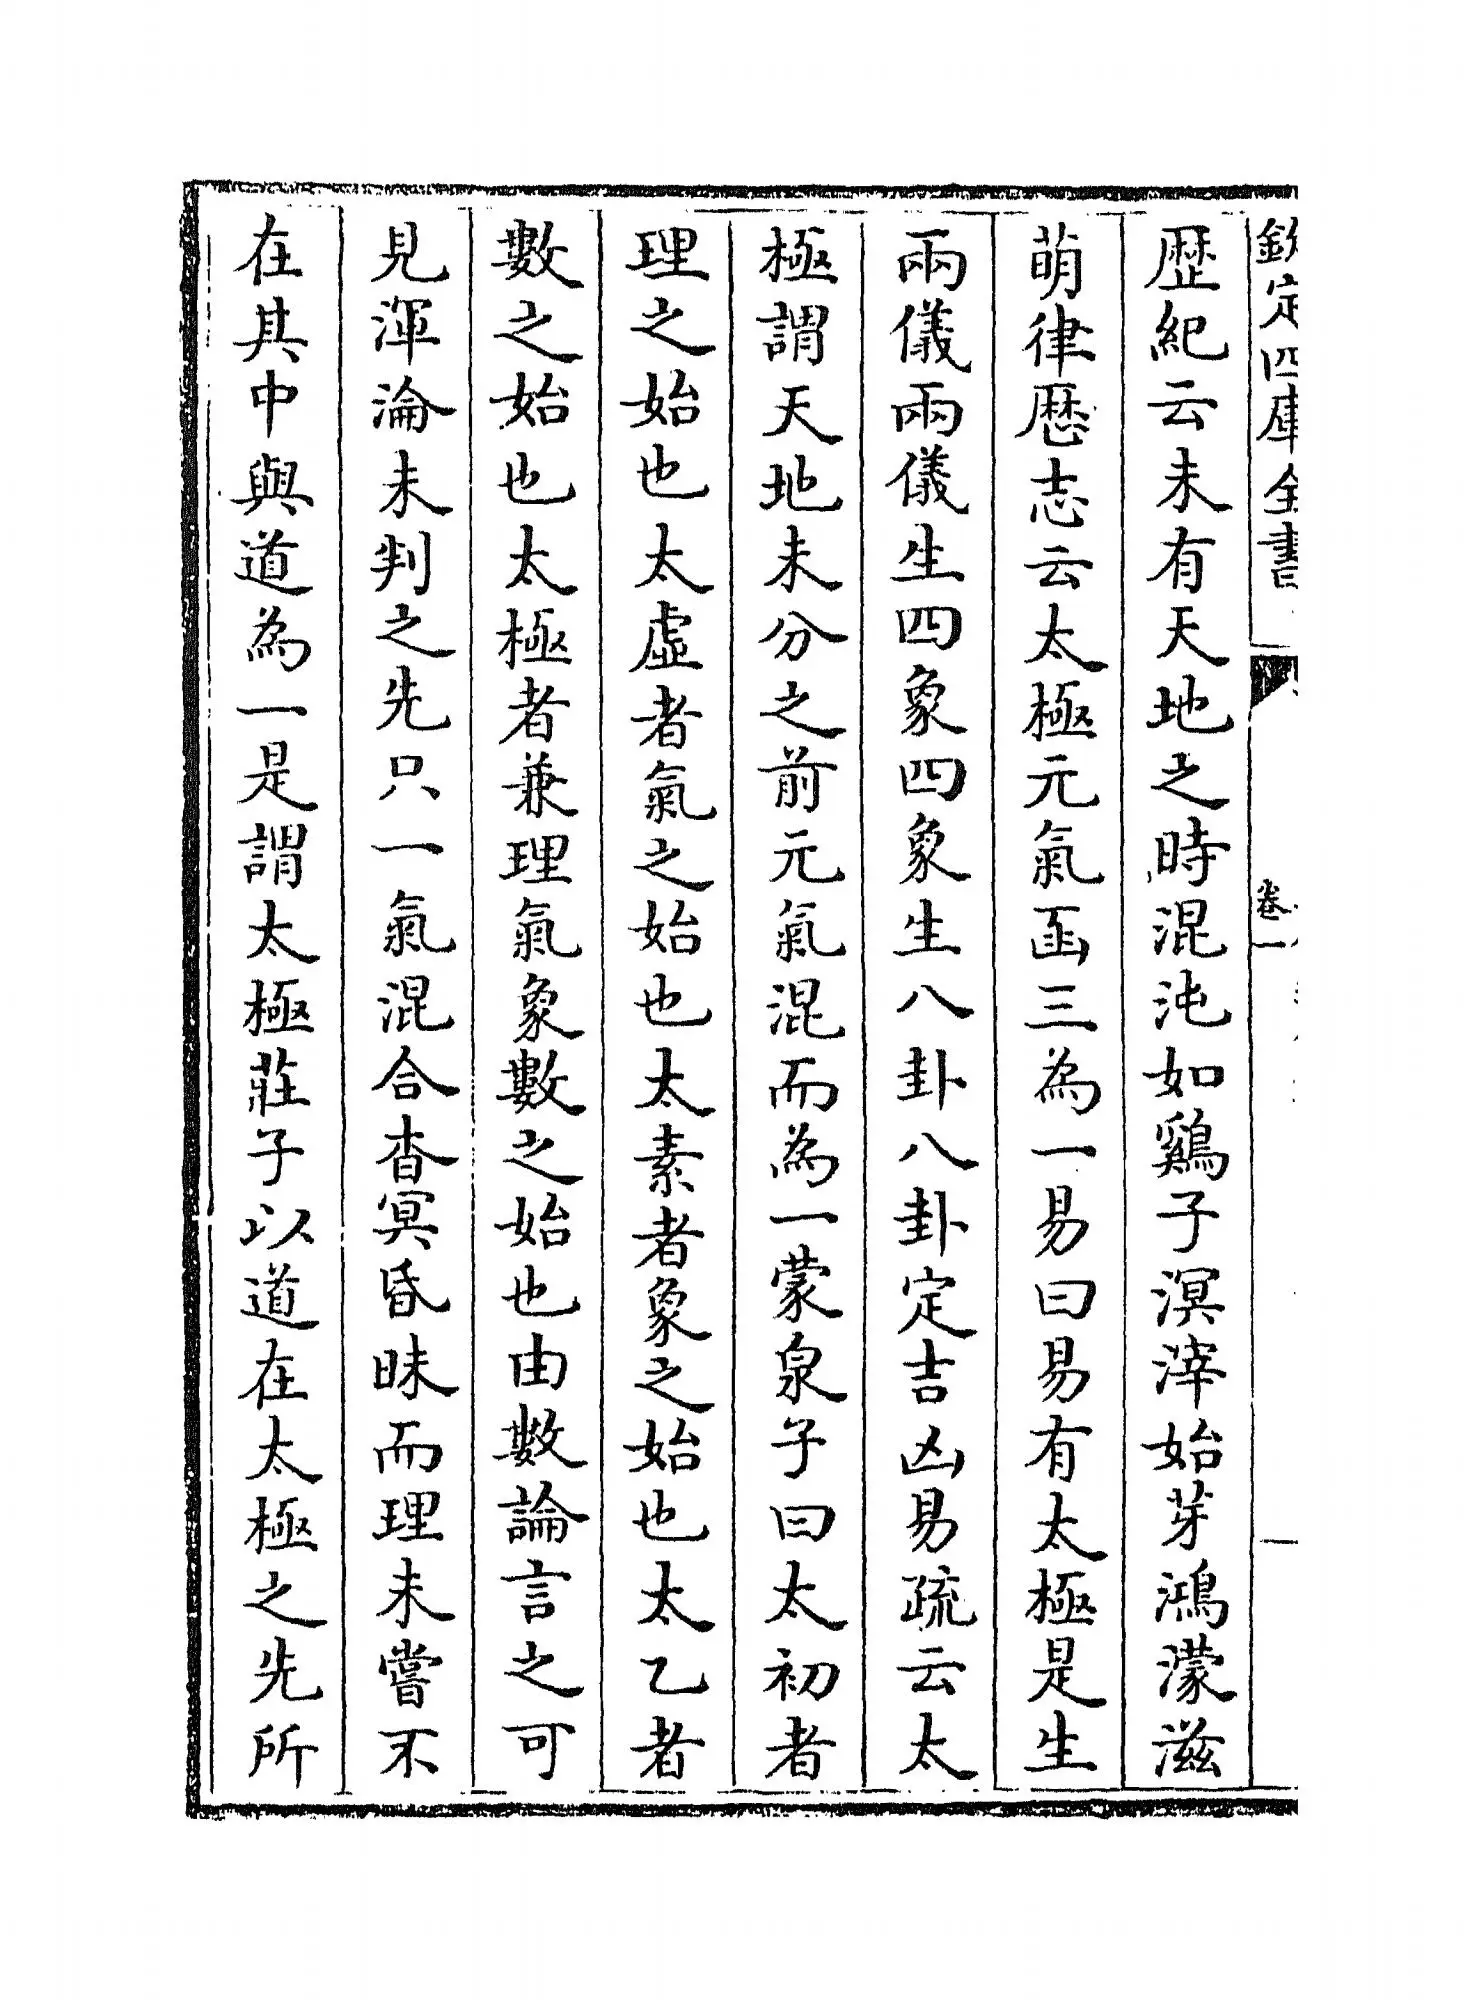 欽定四庫全書
卷一
歴紀云未有天地之時混沌如鷄子溟涬始芽鴻濛滋
萌律厯志云太極元氣函三為一易曰易有太極是生
兩儀兩儀生四象四象生八卦八卦定吉凶易疏云太
極謂天地未分之前元氣混而為一蒙泉子曰太初者
理之始也太虛者氣之始也太素者象之始也太乙者
數之始也太極者兼理氣象數數之始也由數論言之可
見渾淪未判之先只一氣混合杳冥昏昧而理未嘗不
在其中與道為一是謂太極莊子以道在太極之先所